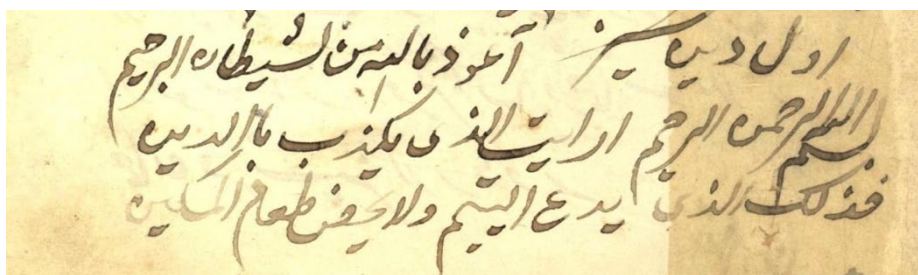 اول دیره سیز آعوذ بالله من لشیطاره الرحیم
بسم الله الرحمن الرحیم ارایت الذی یکذب بالدین
فذلک الذی یدع الیتیم ولا یحض طعام المسکین